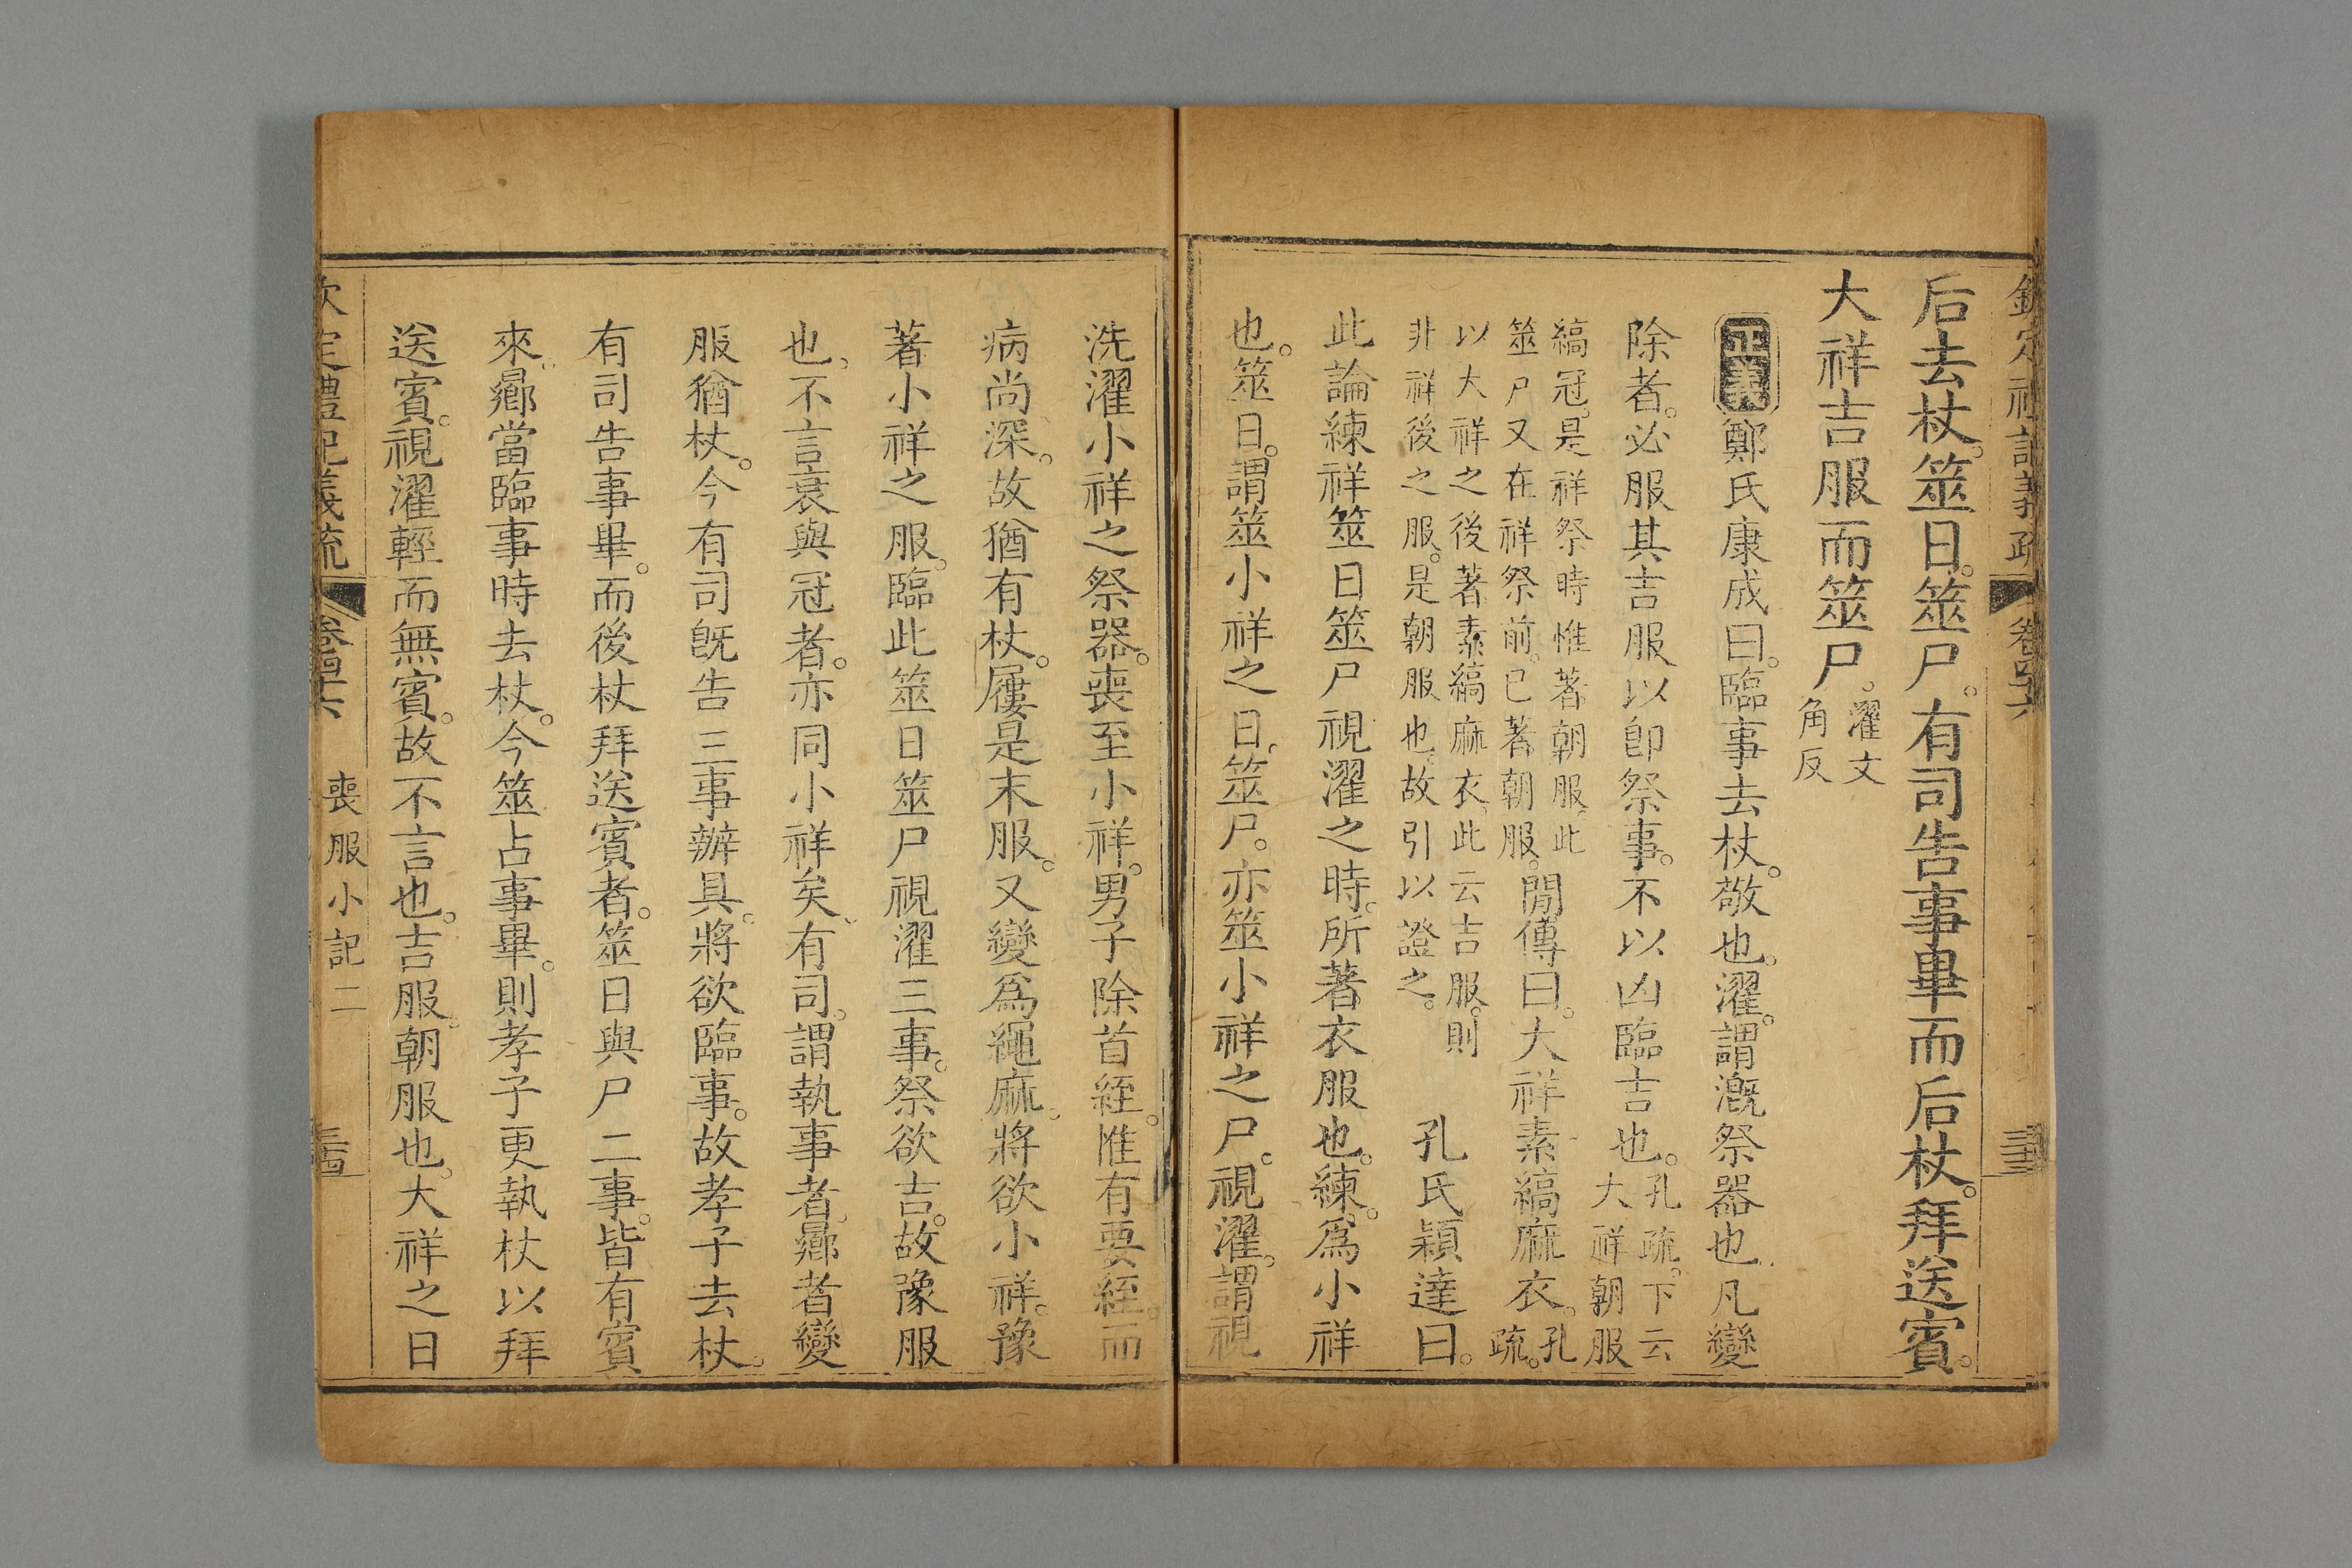 欽定禮記義疏 卷四十六
后去杖。筮日。筮尸。有司告事畢而后杖。拜送賓。
大祥吉服而筮尸。濯文
角反
正義鄭氏康成曰。臨事去杖。敬也。濯。謂漑祭器也。凡變
除者。必服其吉服以卽祭事。不以凶臨吉也。孔疏。下云
大祥朝服
縞冠。是祥祭時惟著朝服。此
筮尸又在祥祭前。已著朝服。閒傳曰。大祥素縞麻衣。孔
疏。
以大祥之後著素縞麻衣。此云吉服。則
非祥後之服。是朝服也。故引以證之。孔氏穎達曰。
此論練祥筮日筮尸視濯之時。所著衣服也。練。爲小祥
也。筮日。謂筮小祥之日。筮尸。亦筮小祥之尸。視濯。謂視
洗濯小祥之祭器。喪至小祥。男子除首絰。惟有要絰。而
病尚深。故猶有杖。屨是末服。又變爲繩麻。將欲小祥。豫
著小祥之服。臨此筮日筮尸視濯三事。祭欲吉。故豫服
也。不言衰與冠者。亦同小祥矣。有司。謂執事者。鄉者變
服猶杖。今有司旣告三事辦具。將欲臨事。故孝子去杖。
有司告事畢。而後杖拜送賓者。筮日與尸二事。皆有賓
來。鄉當臨事時去杖。今筮占事畢。則孝子更執杖以拜
送賓。視濯輕而無賓。故不言也。吉服。朝服也。大祥之日
欽定禮記義疏 卷四十六 喪服小記二